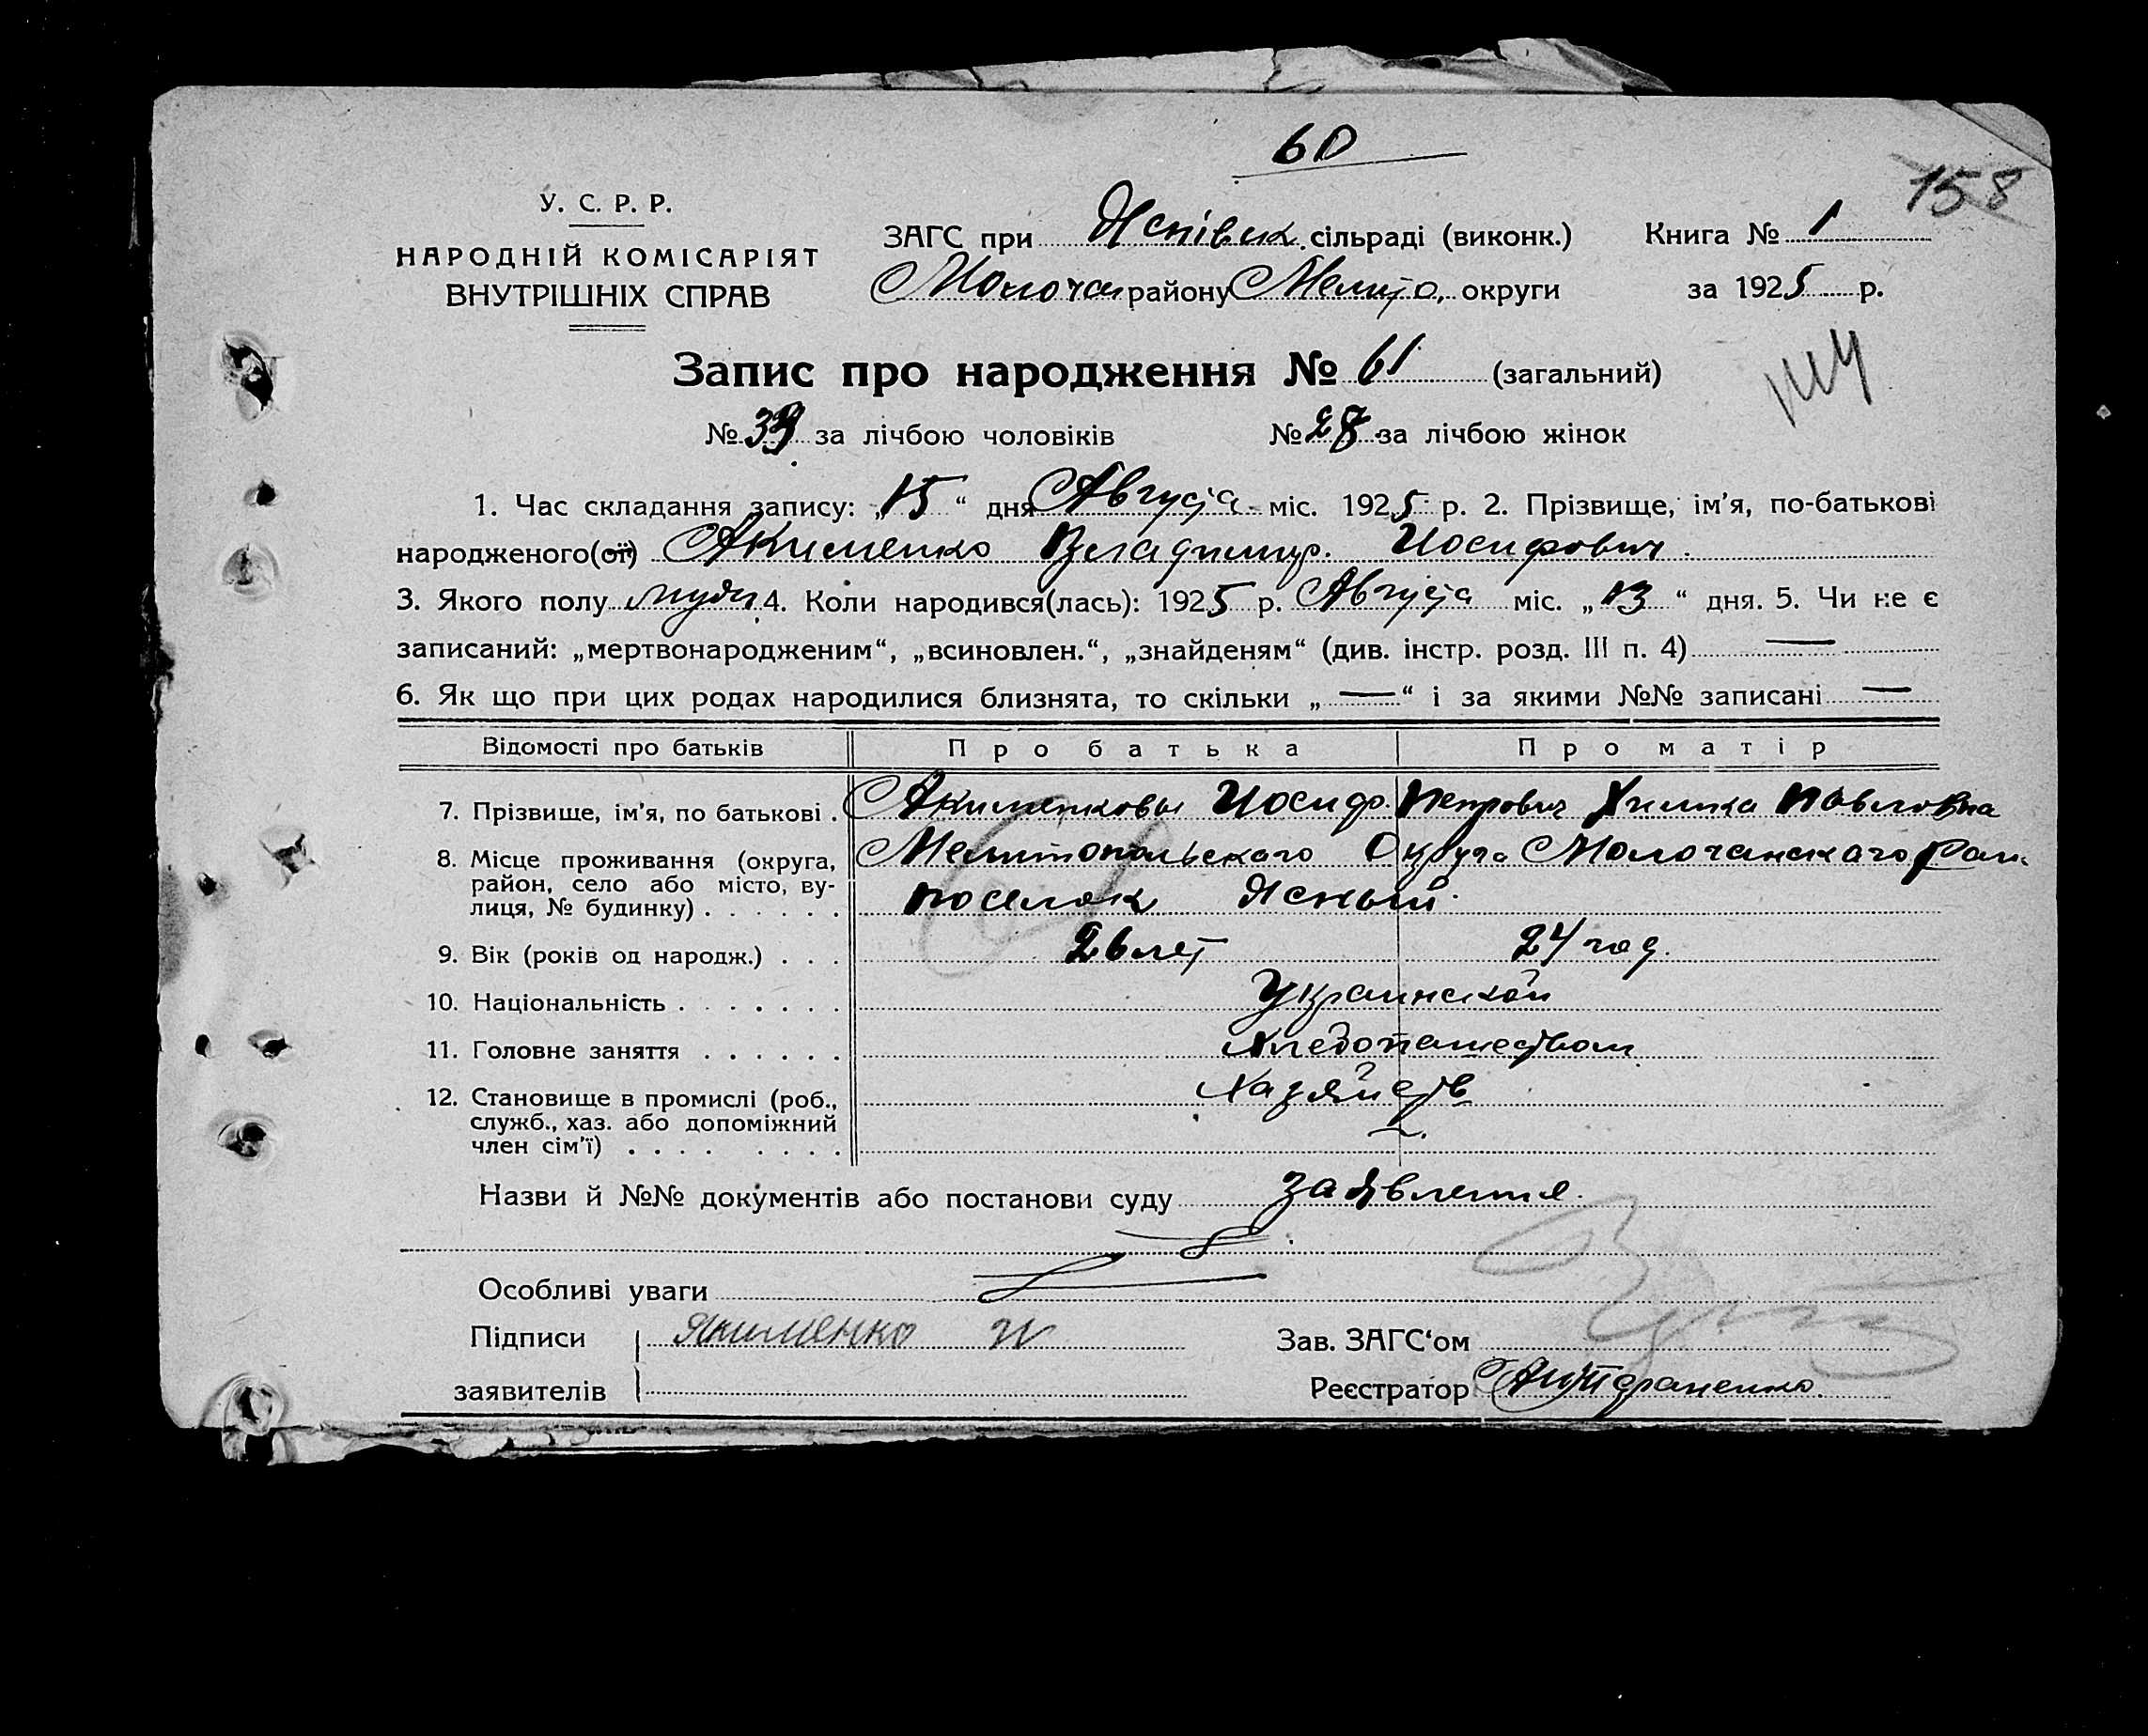 60
158
У. С. Р. Р.
НАРОДНІЙ КОМІСАРІЯТ
ВНУТРІШНІХ СПРАВ
ЗАГС при сільраді (виконк.) Книга № 1
Молочан району Мелито. округи за 1925 р.
Запис про народження № 61 (загальний)
№ 33 за лічбою чоловіків № 28 за лічбою жінок
1. Час складання запису: „15“ дня Августа міс. 1925 р. 2. Прізвище, ім’я, по-батькові
народженого(ої) Акименко Владимир. Иосифович.
3. Якого полу 4. Коли народився(лась): 1925 р. Августа міс. „13“ дня. 5. Чи не є
записаний: „мертвонародженим“, „всиновлен.“, „знайденям“ (див. інстр. розд. III п. 4) —
6. Як що при цих родах народилися близнята, то скільки „—“ і за якими №№ записані —
Відомості про батьків Про батька Про матір
7. Прізвище, ім’я, по батькові . Акименковы Иосиф. Петрович Химка Павловна
8. Місце проживання (округа, район, село або місто, вулиця, № будинку) . . . . . . Мелитопольского Округа Молочанскаго Рай.
поселок Ясный.
9. Вік (років од народж.) . . . 26 лет 24 год.
10. Національність . . . . . . . Украинской
11. Головне заняття . . . . . . Хлебопашеством
12. Становище в промислі (роб., служб., хаз. або допоміжний член сім’ї) . . . . . . . . Хазяйств
Назви й №№ документів або постанови суду Заявление.
Особливі уваги
Підписи Якименко И
Зав. ЗАГС‘ом
заявителів
Реєстратор